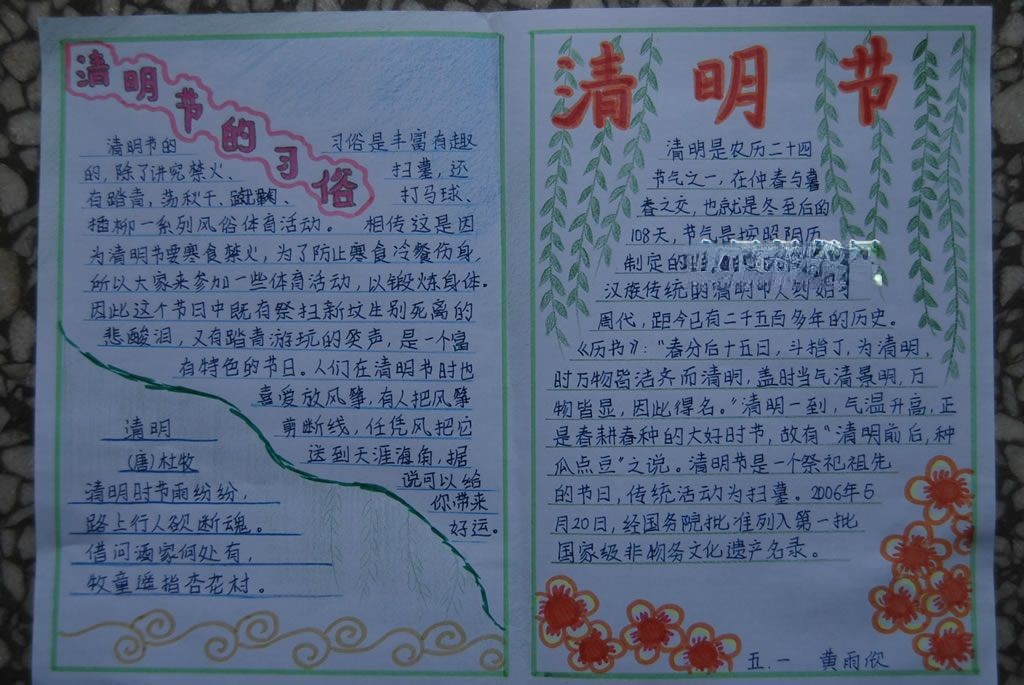 清明节的习俗
清明节的 习俗是丰富有趣
的，除了讲究禁火、 扫墓，还
有踏青，荡秋千、蹴鞠、 打马球、
插柳一系列风俗体育活动。 相传这是因
为清明节要寒食禁火，为了防止寒食冷餐伤身，
所以大家来参加一些体育活动，以锻炼身体。
因此这个节日中既有祭扫新坟生别死离的
悲酸泪，又有踏青游玩的笑声，是一个富
有特色的节日。人们在清明节时也
喜爱放风筝，有人把风筝
剪断线，任凭风把它
送到天涯海角，据
说可以给
你带来
好运。
清明
（唐）杜牧
清明时节雨纷纷，
路上行人欲断魂。
借问酒家何处有，
牧童遥指杏花村。
清明节
清明是农历二十四
节气之一，在仲春与暮
春之交，也就是冬至后的
108天，节气是按照阴历
制定的
汉族传统的清明节
周代，距今已有二千五百多年的历史。
《历书》：“春分后十五日，斗指丁，为清明，
时万物皆洁齐而清明，盖时当气清景明，万
物皆显，因此得名。”清明一到，气温升高，正
是春耕春种的大好时节，故有“清明前后，种
瓜点豆”之说。清明节是一个祭祀祖先
的节日，传统活动为扫墓。2006年5
月20日，经国务院批准列入第一批
国家级非物务文化遗产名录。
五.一 黄雨欣